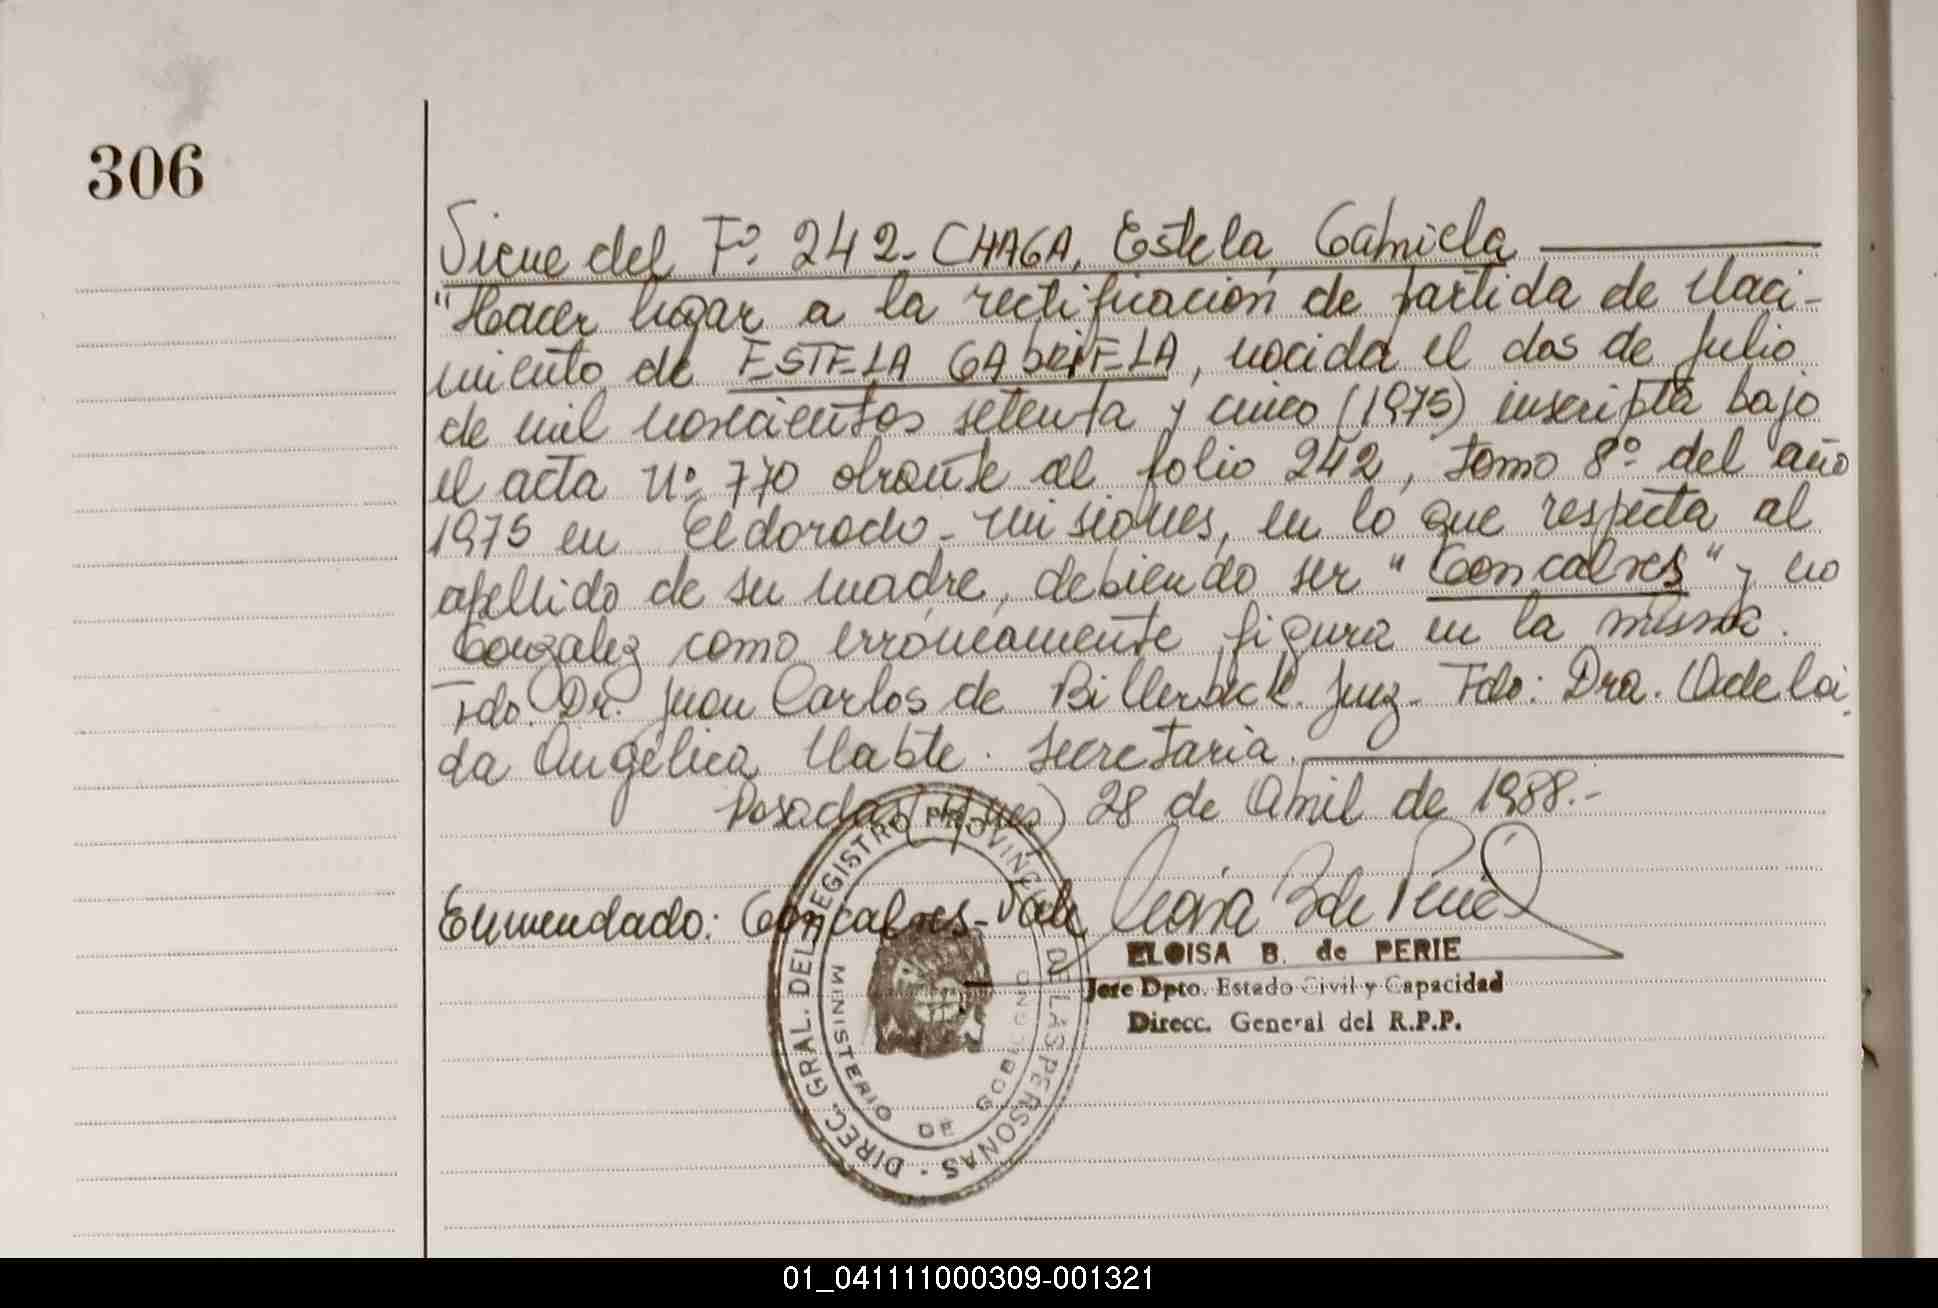 306
Viene del Fº. 242.- CHAGA, Estela Gabriela
"Hacer lugar a la rectificación de partida de Naci-
miento de ESTELA GABRIELA, nacida el dos de Julio
de mil novecientos setenta y cinco (1975) inscripta bajo
el acta Nº 770 obrante al folio 242, tomo 8º del año
1975 en Eldorado - Misiones, en lo que respecta al
apellido de su madre, debiendo ser "Goncalves" y no
Gonzalez como erróneamente figura en la misma.
Fdo. Dr. Juan Carlos de Billerbeck. Juez. Fdo: Dra. Adelai-
da Angélica Nabte. Secretaria.
Posadas (Mnes) 28 de Abril de 1988.-
Enmendado: Goncalves - Vale
ELOISA B. de PERIE
Jefe Dpto. Estado Civil y Capacidad
Direcc. General del R.P.P.
DIREC. GRAL. DEL REGISTRO PROVINCIAL DE LAS PERSONAS
MINISTERIO DE GOBIERNO
01_041111000309-001321